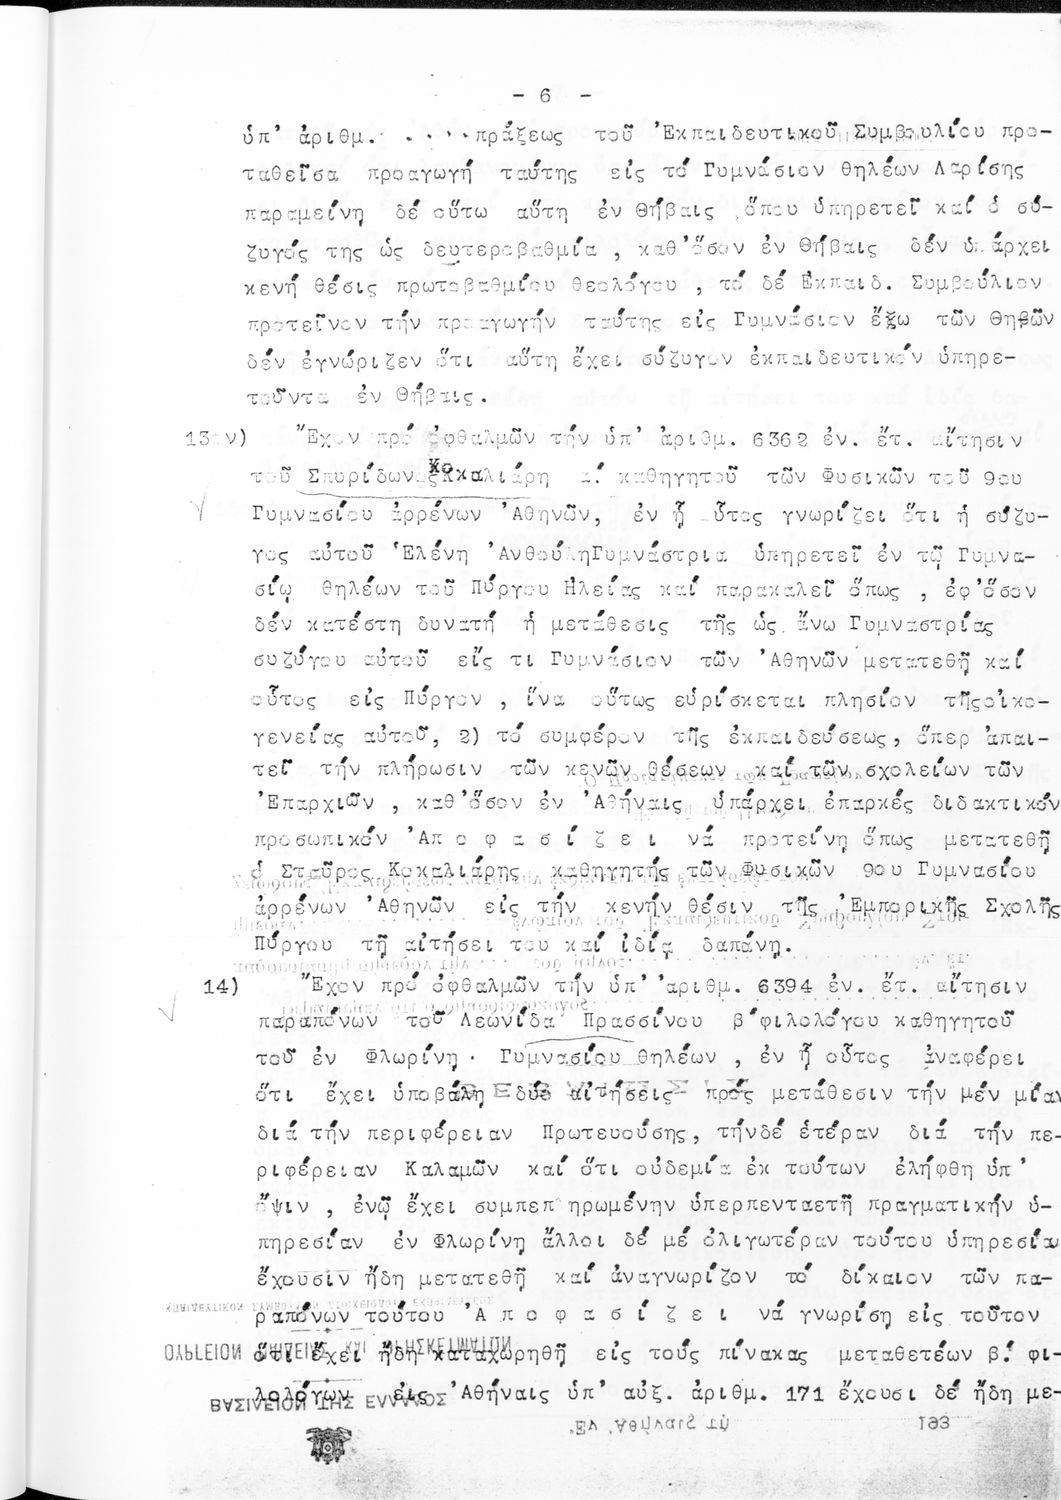 - 6 -
ὑπ' ἀριθμ. . . . . πράξεως τοῦ Ἐκπαιδευτικοῦ Συμβουλίου προ-
ταθεῖσα προαγωγή ταύτης εἰς τό Γυμνάσιον θηλέων Λαρίσης
παραμείνη δέ οὕτω αὕτη ἐν Θήβαις ,ὅπου ὑπηρετεῖ καί ὁ σύ-
ζυγός της ὡς δευτεροβαθμία , καθ'ὅσον ἐν Θήβαις δέν ὑπάρχει
κενή θέσις πρωτοβαθμίου θεολόγου , τό δέ Ἐκπαιδ. Συμβούλιον
προτεῖνον τήν προαγωγήν ταύτης εἰς Γυμνάσιον ἔξω τῶν Θηβῶν
δέν ἐγνώριζεν ὅτι αὕτη ἔχει σύζυγον ἐκπαιδευτικόν ὑπηρε-
τοῦντα ἐν Θήβαις.
13ον) Ἔχον πρό ὀφθαλμῶν τήν ὑπ' ἀριθμ. 6362 ἐν. ἔτ. αἴτησιν
τοῦ Σπυρίδωνος Κοκαλιάρη α. καθηγητοῦ τῶν Φυσικῶν τοῦ 9ου
Γυμνασίου ἀρρένων Ἀθηνῶν, ἐν ᾗ οὗτος γνωρίζει ὅτι ἡ σύζυ-
γος αὐτοῦ Ἑλένη ἈνθούληΓυμνάστρια ὑπηρετεῖ ἐν τῷ Γυμνα-
σίῳ θηλέων τοῦ Πύργου Ἠλείας καί παρακαλεῖ ὅπως , ἐφ'ὅσον
δέν κατέστη δυνατή ἡ μετάθεσις τῆς ὡς ἄνω Γυμναστρίας
συζύγου αὐτοῦ εἴς τι Γυμνάσιον τῶν Ἀθηνῶν μετατεθῇ καί
οὗτος εἰς Πύργον , ἵνα οὕτως εὑρίσκεται πλησίον τῆςοἰκο-
γενείας αὐτοῦ, 2) τό συμφέρον τῆς ἐκπαιδεύσεως, ὅπερ ἀπαι-
τεῖ τήν πλήρωσιν τῶν κενῶν θέσεων καί τῶν σχολείων τῶν
Ἐπαρχιῶν , καθ'ὅσον ἐν Ἀθήναις ὑπάρχει ἐπαρκές διδακτικόν
προσωπικόν Ἀ π ο φ α σ ί ζ ε ι νά προτείνῃ ὅπως μετατεθῇ
ὁ Σταῦρος Κοκαλιάρης καθηγητής τῶν Φυσικῶν 9ου Γυμνασίου
ἀρρένων Ἀθηνῶν εἰς τήν κενήν θέσιν τῆς Ἐμπορικῆς Σχολῆς
Πύργου τῇ αἰτήσει του καί ἰδίᾳ δαπάνῃ.
14) Ἔχον πρό ὀφθαλμῶν τήν ὑπ' ἀριθμ. 6394 ἐν. ἔτ. αἴτησιν
παραπόνων τοῦ Λεωνίδα Πρασσίνου β'φιλολόγου καθηγητοῦ
τοῦ ἐν Φλωρίνῃ Γυμνασίου θηλέων , ἐν ᾗ οὗτος ἀναφέρει
ὅτι ἔχει ὑποβάλη δύο αἰτήσεις πρός μετάθεσιν τήν μέν μίαν
διά τήν περιφέρειαν Πρωτευούσης, τήνδέ ἑτέραν διά τήν πε-
ριφέρειαν Καλαμῶν καί ὅτι οὐδεμία ἐκ τούτων ἐλήφθη ὑπ'
ὄψιν , ἐνῷ ἔχει συμπεπληρωμένην ὑπερπενταετῆ πραγματικήν ὑ-
πηρεσίαν ἐν Φλωρίνῃ ἄλλοι δέ μέ ὀλιγωτέραν τούτου ὑπηρεσίαν
ἔχουσιν ἤδη μετατεθῆ καί ἀναγνωρίζον τό δίκαιον τῶν πα-
ραπόνων τούτου Ἀ π ο φ α σ ί ζ ε ι νά γνωρίσῃ εἰς τοῦτον
ὅτι ἔχει ἤδη καταχωρηθῆ εἰς τούς πίνακας μεταθετέων β. φι-
λολόγων εἰς Ἀθήναις ὑπ' αὐξ. ἀριθμ. 171 ἔχουσι δέ ἤδη με-